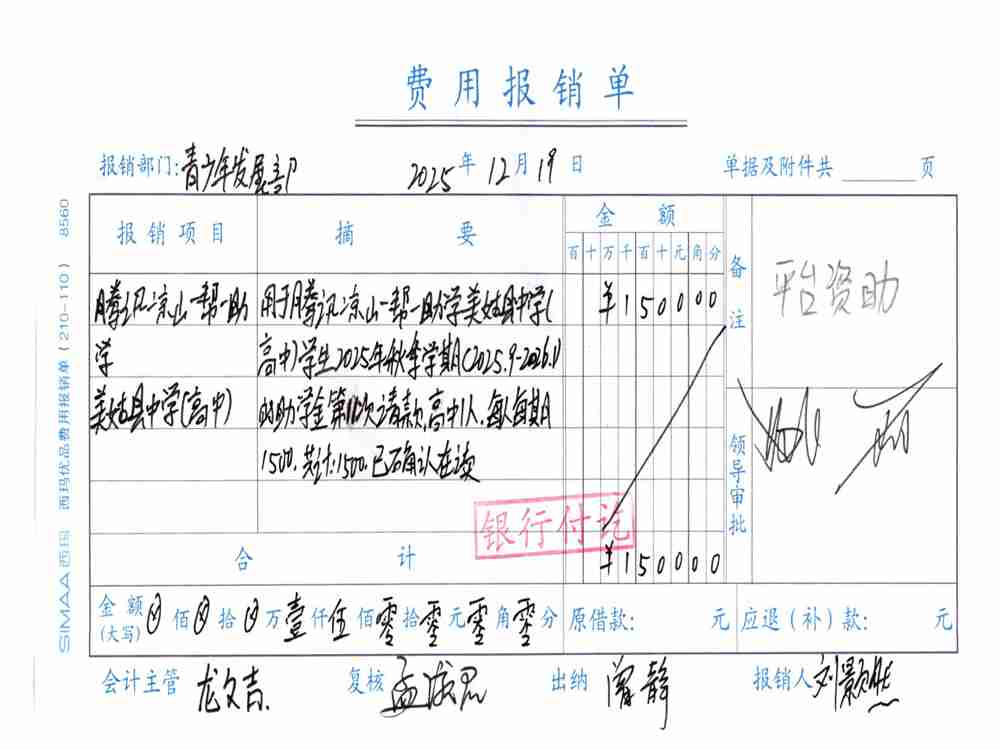 费用报销单
报销部门:青少年发展部 2025年12月19日 单据及附件共 页
报销项目 摘要 金额 备注
百十万千百十元角分
腾讯凉山一帮一助学 用于腾讯凉山一帮一助学美姑县中学( ¥150000 平台资助
高中)学生2025年秋季学期(2025.9-2026.1)
美姑县中学(高中) 的助学金第11次请款,高中1人,每人每期
1500,共计:1500.已确认在读
领导审批
银行付讫
合计 ¥150000
金额(大写) 佰 拾 万壹仟伍佰零拾零元零角零分 原借款: 元 应退(补)款: 元
会计主管 龙文吉 复核 孟 出纳 曾静 报销人 刘颢
SIMAA西玛 西玛优品费用报销单(210-110) 8560